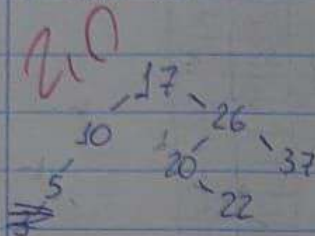 2,0
17
10 26
20 37
5
22